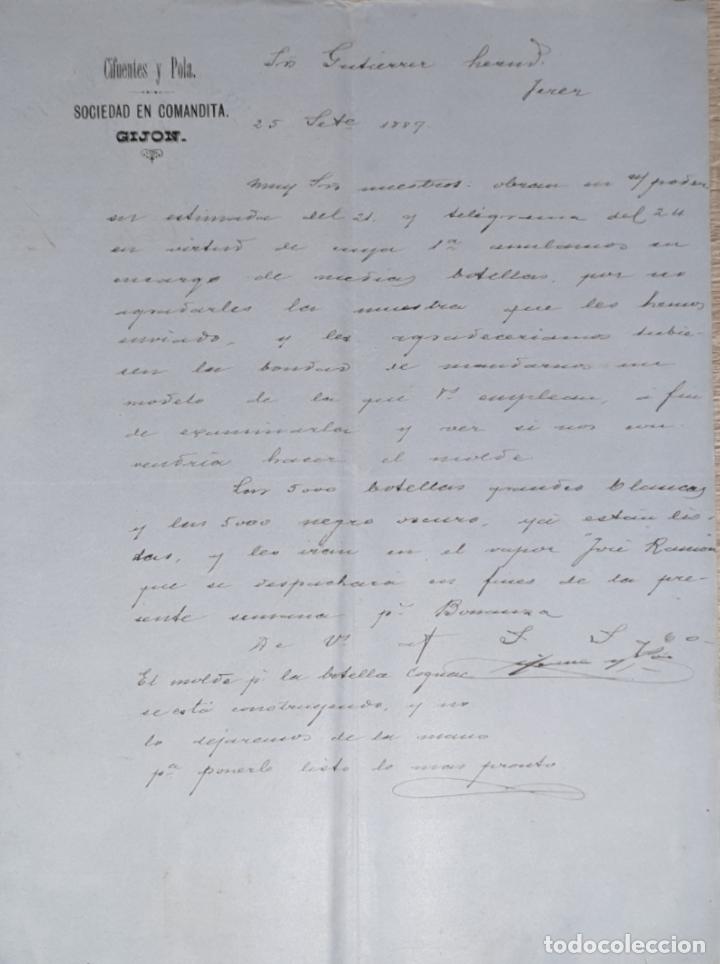 Cifuentes y Pola.
SOCIEDAD EN COMANDITA.
GIJON.
Srs Gutiérrez herms.
Jerez
25 Sete 1887.
Muy Srs nuestros: obran en n/ poder
su estimada del 21, y telegrama del 24
en virtud de cuya 1ª anulamos su
encargo de medias botellas, por no
agradarles la muestra que les hemos
enviado, y les agradeceriamos tubie-
sen la bondad de mandarnos un
modelo de la que Vs emplean, á fin
de examinarla y ver si nos con
vendria hacer el molde.
Las 5000 botellas grandes blancas
y las 5000 negro oscuro, ya están lis-
tas, y les irán en el vapor José Ramón
que se despachará en fines de la pre-
sente semana pª Bonanza
De Vs af S. S.
Cifuentes y Pola
El molde pª la botella Cognac
se está construyendo, y no
lo dejaremos de la mano
pª ponerlo listo lo mas pronto
todocoleccion